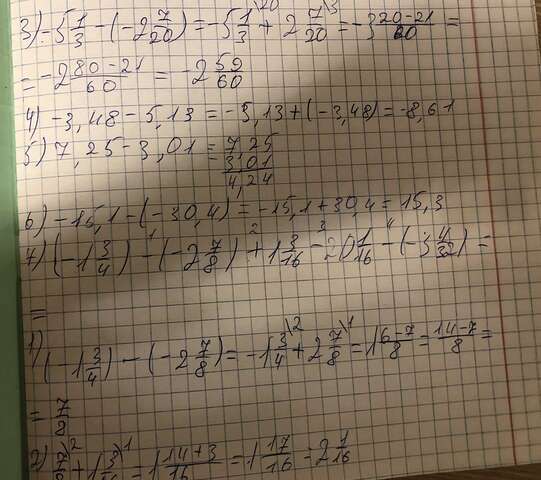 3) -5 1/3 - (-2 7/20) = -5 1/3 \20 + 2 7/20 \3 = -3 20-21/60 =
= -2 80-21/60 = -2 59/60
4) -3,48 - 5,13 = -5,13 + (-3,48) = -8,61
5) 7,25 - 3,01 = 7 25
3,01
4,24
6) -15,1 - (-30,4) = -15,1 + 30,4 = 15,3
7) (-1 3/4) - (-2 7/8) + 1 3/16 - 20 1/16 - (-3 4/32) =
=
1) (-1 3/4) - (-2 7/8) = -1 3/4 \2 + 2 7/8 \1 = 1 6-7/8 = 14-7/8 =
= 7/8
2) 7/8 \2 + 1 3/16 \1 = 1 14+3/16 = 1 17/16 = 2 1/16